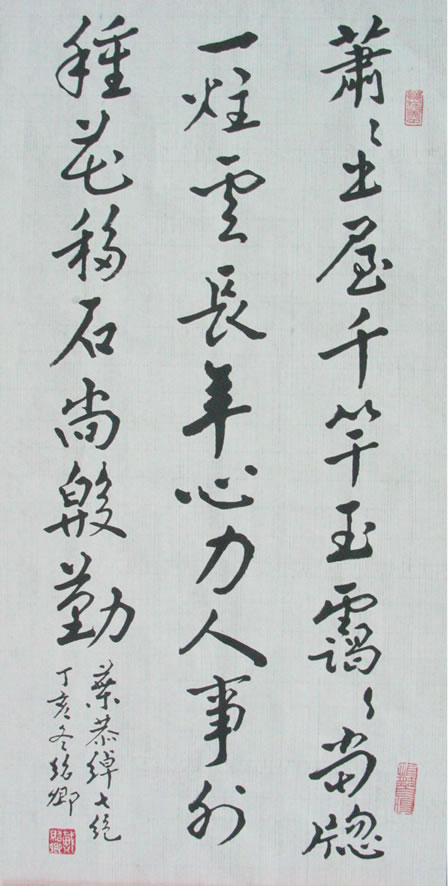 蕭〻土屋千竿玉靄〻當牕
一炷雲長年心力人事外
種花移石尚殷勤
葉恭綽七絕
丁亥冬